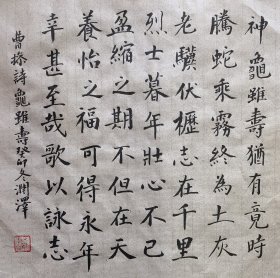 神龜雖壽猶有竟時
騰蛇乘霧終為土灰
老驥伏櫪志在千里
烈士暮年壯心不已
盈縮之期不但在天
養怡之福可得永年
幸甚至哉歌以詠志
曹操詩龜雖壽癸卯冬澤